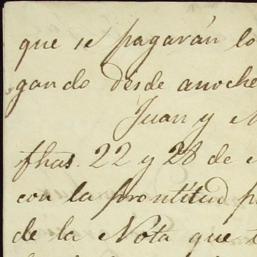 que se pagarán lo
gando desde anoche
Juan y
fhas. 22 y 28 de
con la prontitud p
de la Nota que t